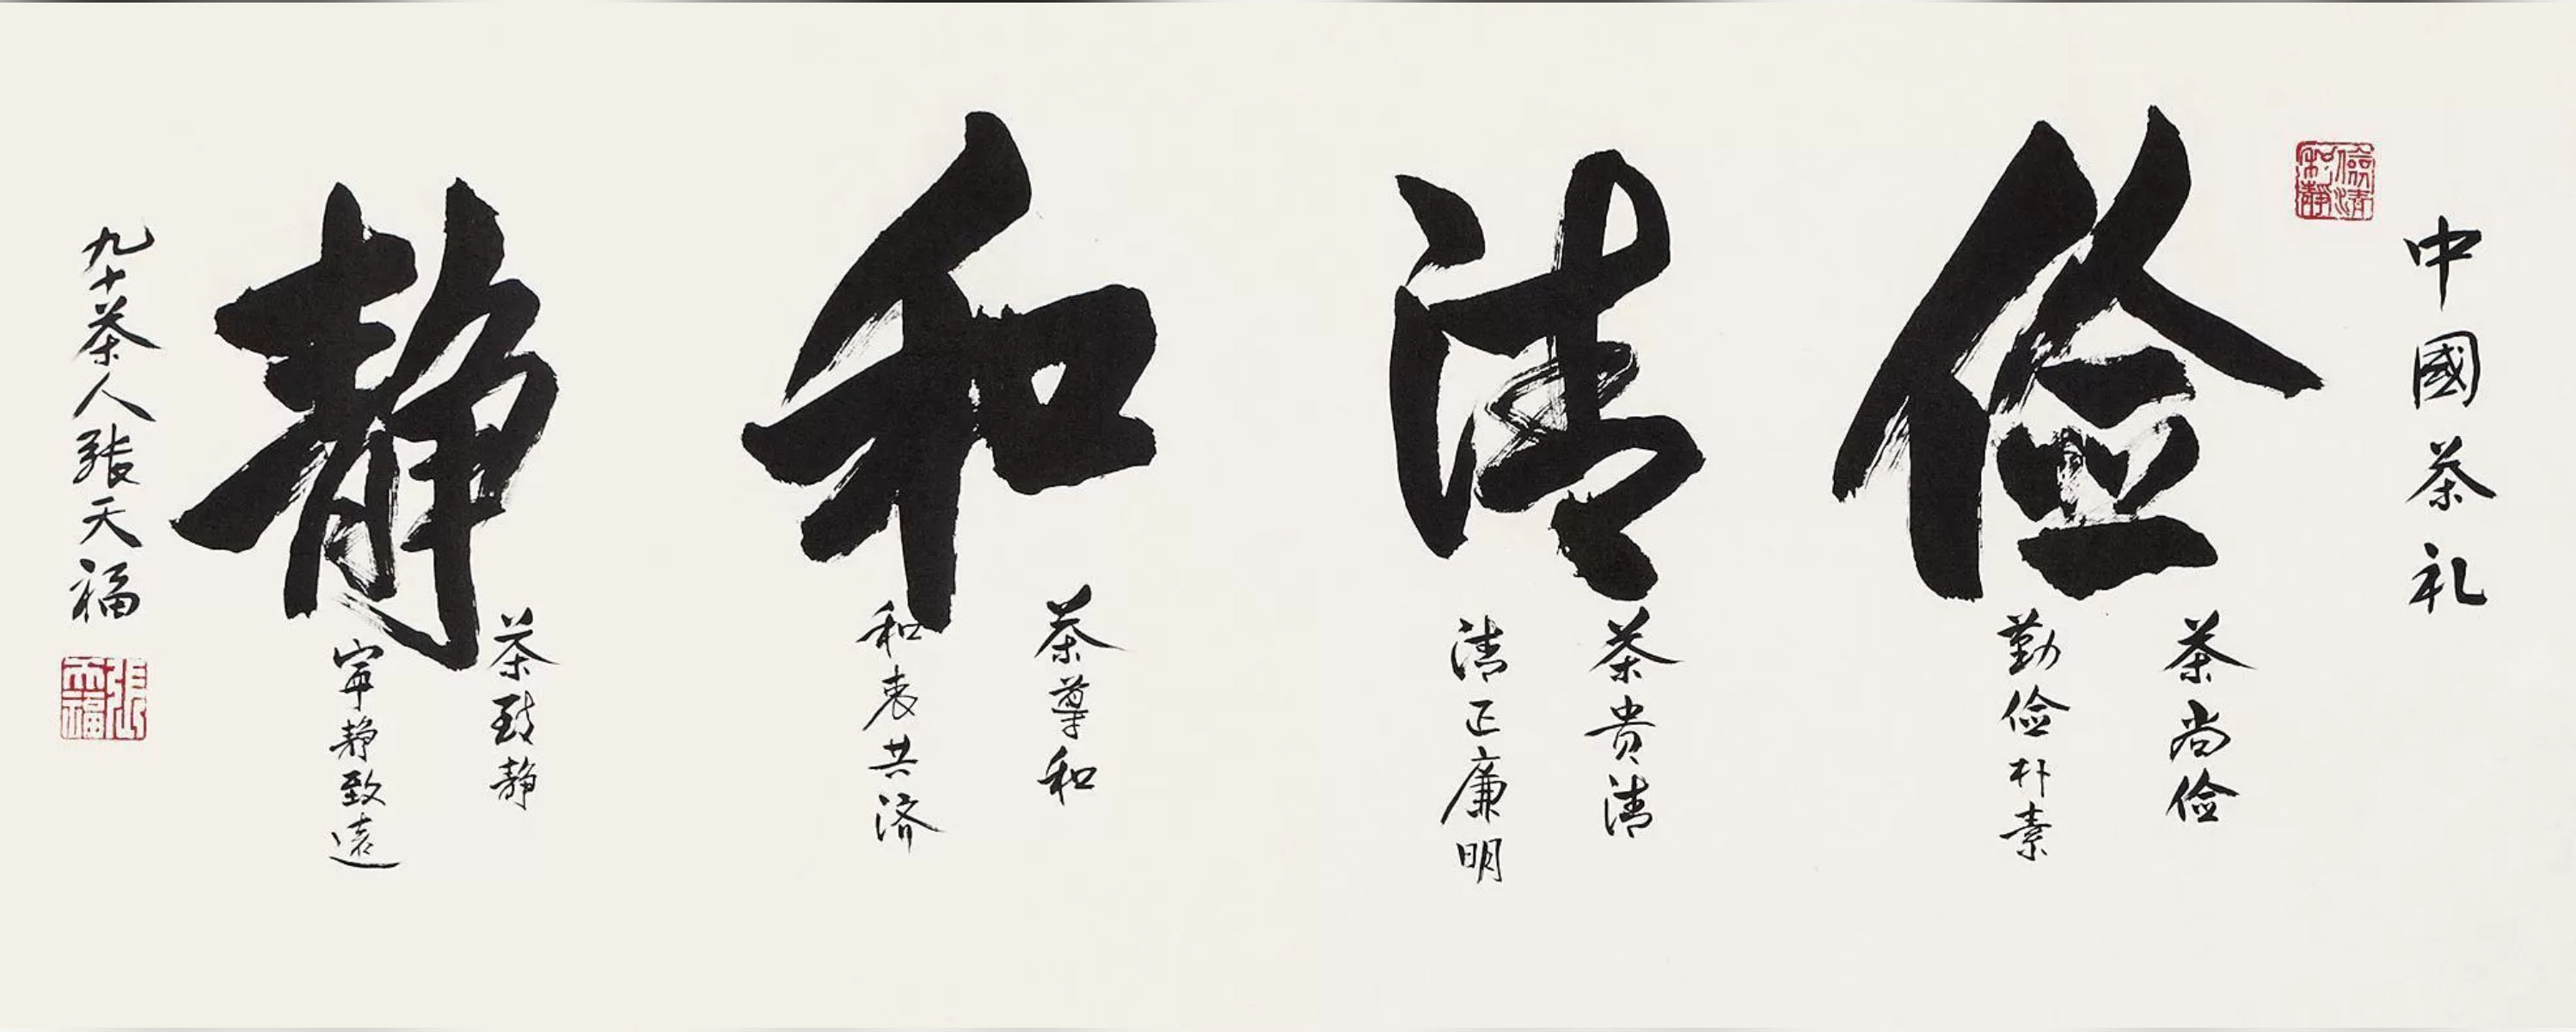 中國茶礼
儉清和靜
俭
茶尚俭
勤俭朴素
清
茶贵清
清正廉明
和
茶尊和
和衷共济
静
茶致静
宁静致遠
九十茶人張天福
張天福